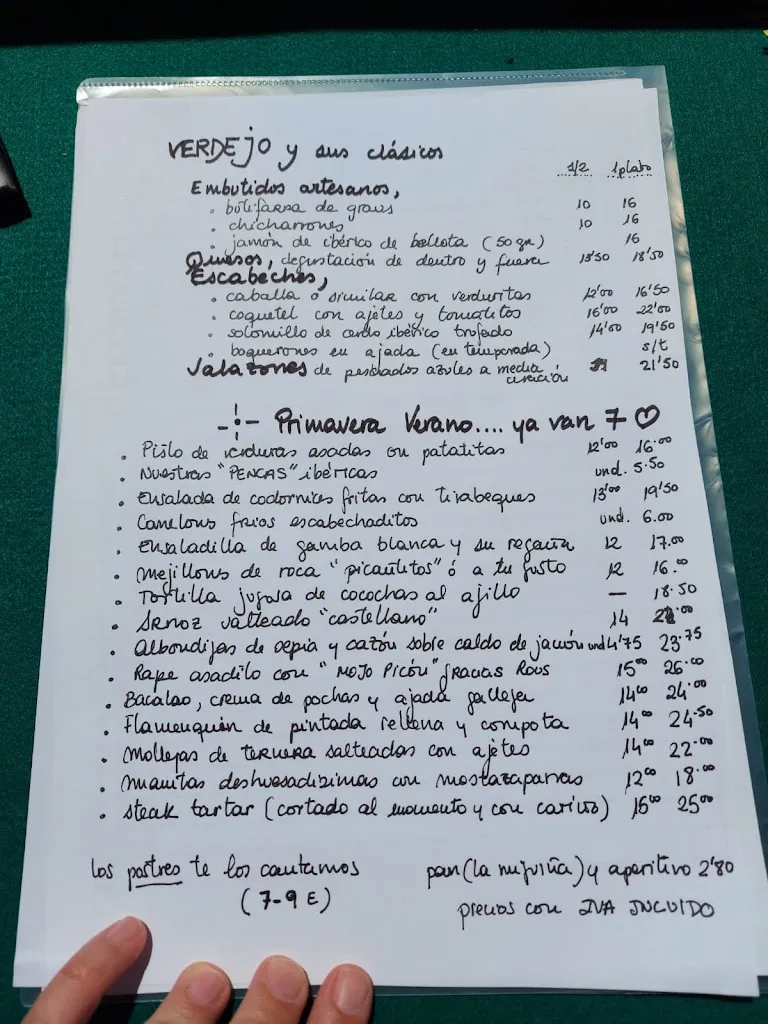 VERDEJO y sus clásicos
1/2 1plato
Embutidos artesanos,
· butifarra de 10 16
· chicharrones 10 16
· jamón de ibérico de bellota (50 gr) 16
Quesos, degustación de dentro y fuera 13'50 18'50
Escabeches,
· caballa o similar con verduritas 12'00 16'50
· coquetel con ajetes y tomatitos 16'00 22'00
· solomillo de cerdo ibérico trufado 14'00 19'50
· boquerones en ajada (en temporada) s/t
Salazones de pescados azules a media curación 21'50
Primavera Verano.... ya van 7 ♡
· Pisto de verduras asadas con patatitas 12'00 16.00
· Nuestras "PENCAS" ibéricas und. 5.50
· Ensalada de codornices fritas con tirabeques 13'00 19'50
· Canelons fríos escabechaditos und. 6.00
· Ensaladilla de gamba blanca y su regañá 12 17.00
· Mejillons de roca "picantitos" ó a tu gusto 12 16.00
· Tortilla jugosa de cocochas al ajillo — 18.50
· Arroz salteado "castellano" 14
· Albondijas de sepia y cazón sobre caldo de jamón und 4'75 23.75
· Rape asadito con "MOJO PICÓN" gracias Rous 15'00 26.00
· Bacalao, crema de pochas y ajada gallega 14'00 24.00
· Flamenquín de pintada rellena y compota 14'00 24.50
· Mollejas de TERNERA salteadas con ajetes 14'00 22.00
· Manitas deshuesadizimas con mostazaparras 12'00 18.00
· steak tartar (cortado al momento y con cariño) 15'00 25'00
los postres te los cantamos
(7-9 E)
pan (la miguiña) y aperitivo 2'80
precios con IVA INCUIDO